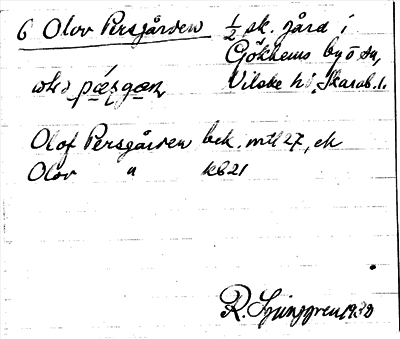 6 Olov Persgården ½ sk. gård i
Gökhems by o sn,
Vilske hd, Skarab. l.
Olof Persgården bek. mtl 27, ek
Olov " kb 21
R. Ljunggren 1930